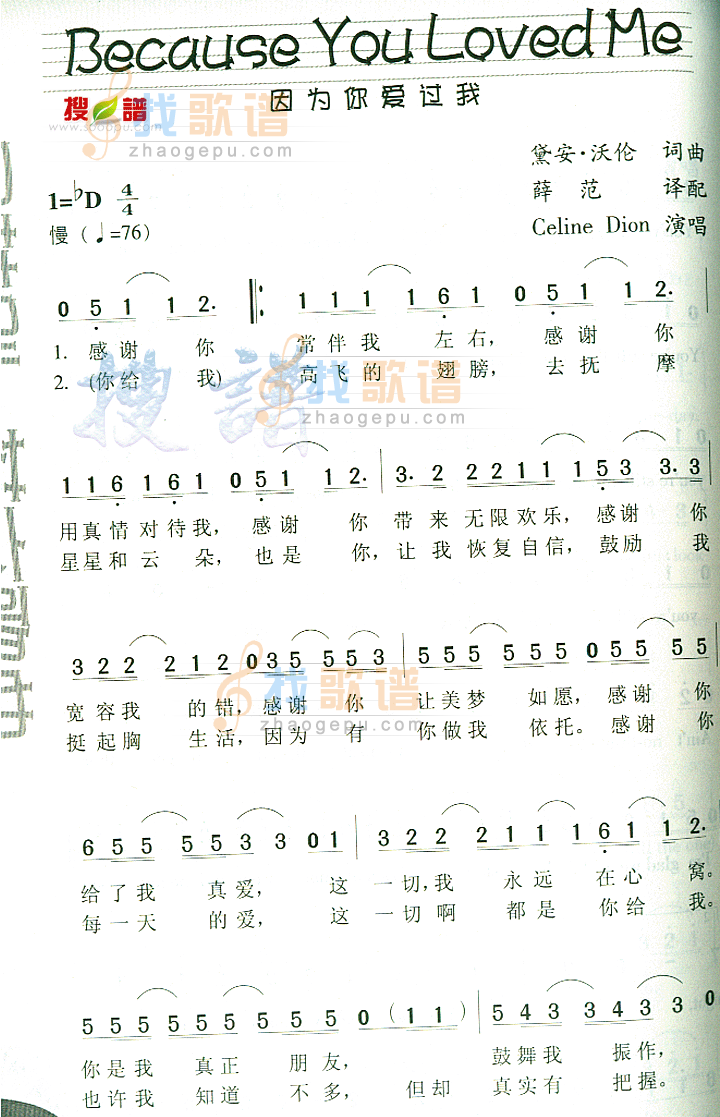 Because You Loved Me
因为你爱过我
搜谱
www.sooopu.com
找歌谱
zhaogepu.com
黛安·沃伦 词曲
薛范 译配
Celine Dion 演唱
1=♭D 4/4
慢（♩=76）
0 5 1 1 2. 1 1 1 1 6 1 0 5 1 1 2.
1. 感谢 你 常伴我 左右，感谢 你
2. (你给 我) 高飞的 翅膀，去抚 摩
搜譜
找歌谱
zhaogepu.com
1 1 6 1 6 1 0 5 1 1 2. 3. 2 2 2 1 1 1 5 3 3. 3
用真情对待我，感谢 你 带来无限欢乐，感谢 你
星星和云 朵，也是 你，让我恢复自信，鼓励 我
3 2 2 2 1 2 0 3 5 5 5 3 5 5 5 5 5 5 0 5 5 5 5
宽容我 的错，感谢 你 让美梦 如愿，感谢 你
挺起胸 生活，因为 有 你做我 依托。感谢 你
找歌谱
zhaogepu.com
6 5 5 5 5 3 3 0 1 3 2 2 2 1 1 1 6 1 1 2.
给了我 真爱，这一切，我 永远 在心 窝。
每一天 的爱，这一切啊 都是 你给 我。
5 5 5 5 5 5 5 5 5 0 （1 1） 5 4 3 3 4 3 3 0
你是我 真正 朋友， 鼓舞我 振作，
也许我 知道 不多，但却 真实有 把握。